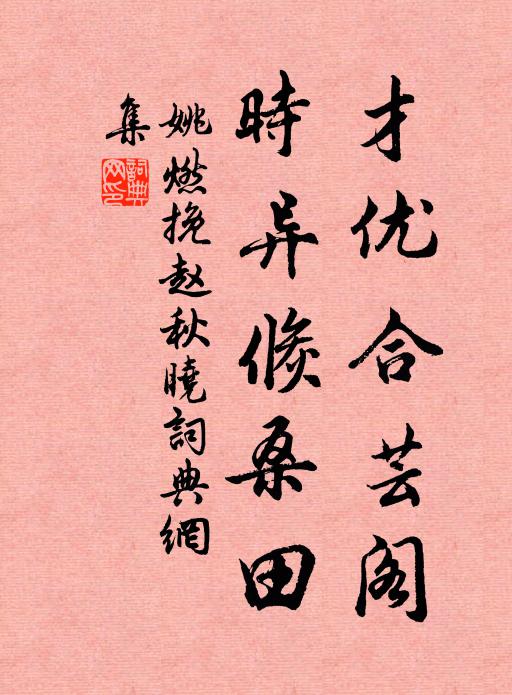 才优合芸阁
時异倏桑田
姚燃挽赵秋曉詞典網
集
詞典网印